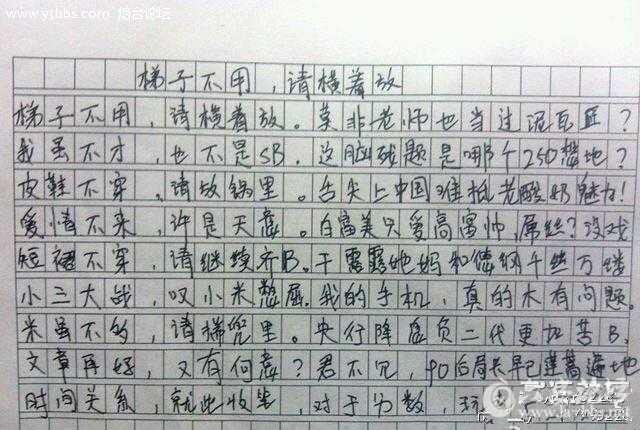 www.ytbbs.com 烟台论坛
梯子不用,请横着放
梯子不用,请横着放。莫非老师也当过泥瓦匠?
我虽不才,也不是SB。这脑残题是哪个250想地?
皮鞋不穿,请放锅里。舌尖上中国难抵老酸奶魅力!
爱情不来,许是天意。白富美只爱高富帅,屌丝?没戏
短裙不穿,请继续齐B。干露露她妈和德纲千丝万缕
小三大战,叹小米憋屈。我的手机,真的木有问题。
米虽不多,请揣兜里。央行降息负二代更加苦B,
文章再好,又有何意?君不见,90后局长早已遍地
时间关系,就此收笔,对于分数,